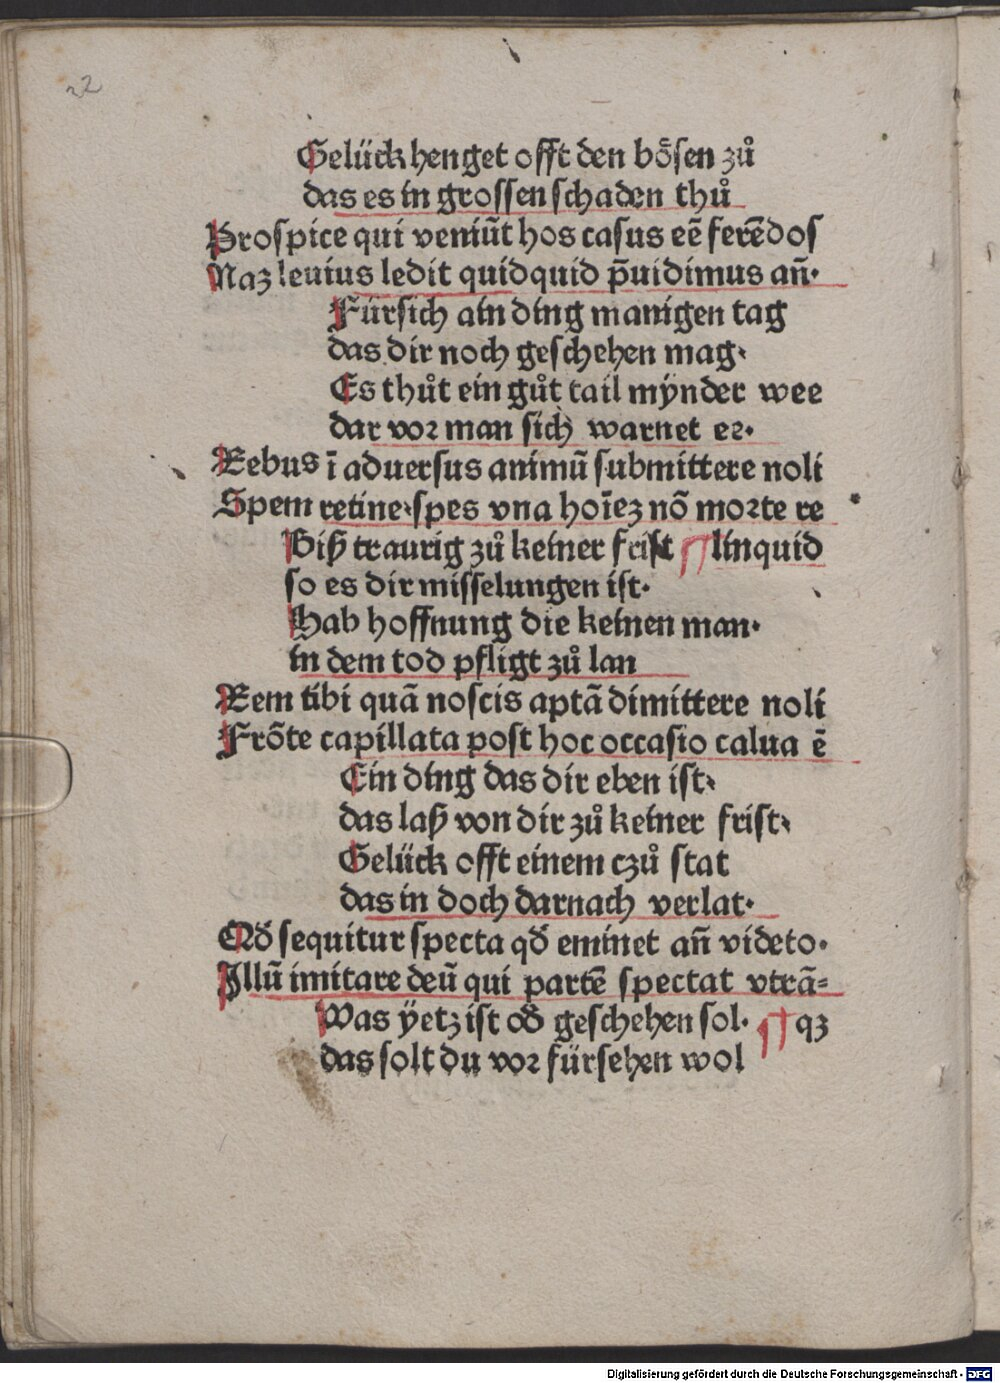 22
Gelück henget offt den bösen zů
das es in grossen schaden thů
Prospice qui veniūt hos casus eē ferēdos
Naʒ leuius ledit quidquid p̄uidimus an̄·
Fürsich ain ding manigen tag
das dir noch geschehen mag·
Es thůt ein gůt tail mÿnder wee
dar vor man sich warnet ee·
Rebus ī aduersus animū submittere noli
Spem retine·spes vna hoīeʒ nō morte re
Biß traurig zů keiner frist ¶ linquid
so es dir misselungen ist·
Hab hoffnung die keinen man·
in dem tod pfligt zů lan
Rem tibi quā noscis aptā dimittere noli
Frōte capillata post hoc occasio calua ē
Ein ding das dir eben ist·
das laß von dir zů keiner frist·
Gelück offt einem czů stat
das in doch darnach verlat·
Qđ sequitur specta qđ eminet an̄ videto·
Illū imitare deū qui partē spectat vtrā=
Was ÿetz ist ođ geschehen sol· ¶ qꝫ
das solt du vor fürsehen wol
Digitalisierung gefördert durch die Deutsche Forschungsgemeinschaft - DFG